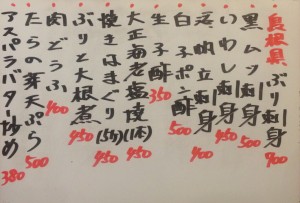 島根県ぶり刺身 900
黒ムツ刺身 500
いわし刺身 450
活帆立刺身 400
白子ポン酢 500
生子酢 350
大正海老塩焼(1本) 450
焼きはまぐり(5ケ) 450
ぶりと大根煮 450
肉どうふ 400
たらの芽天ぷら 500
アスパラバター炒め 380